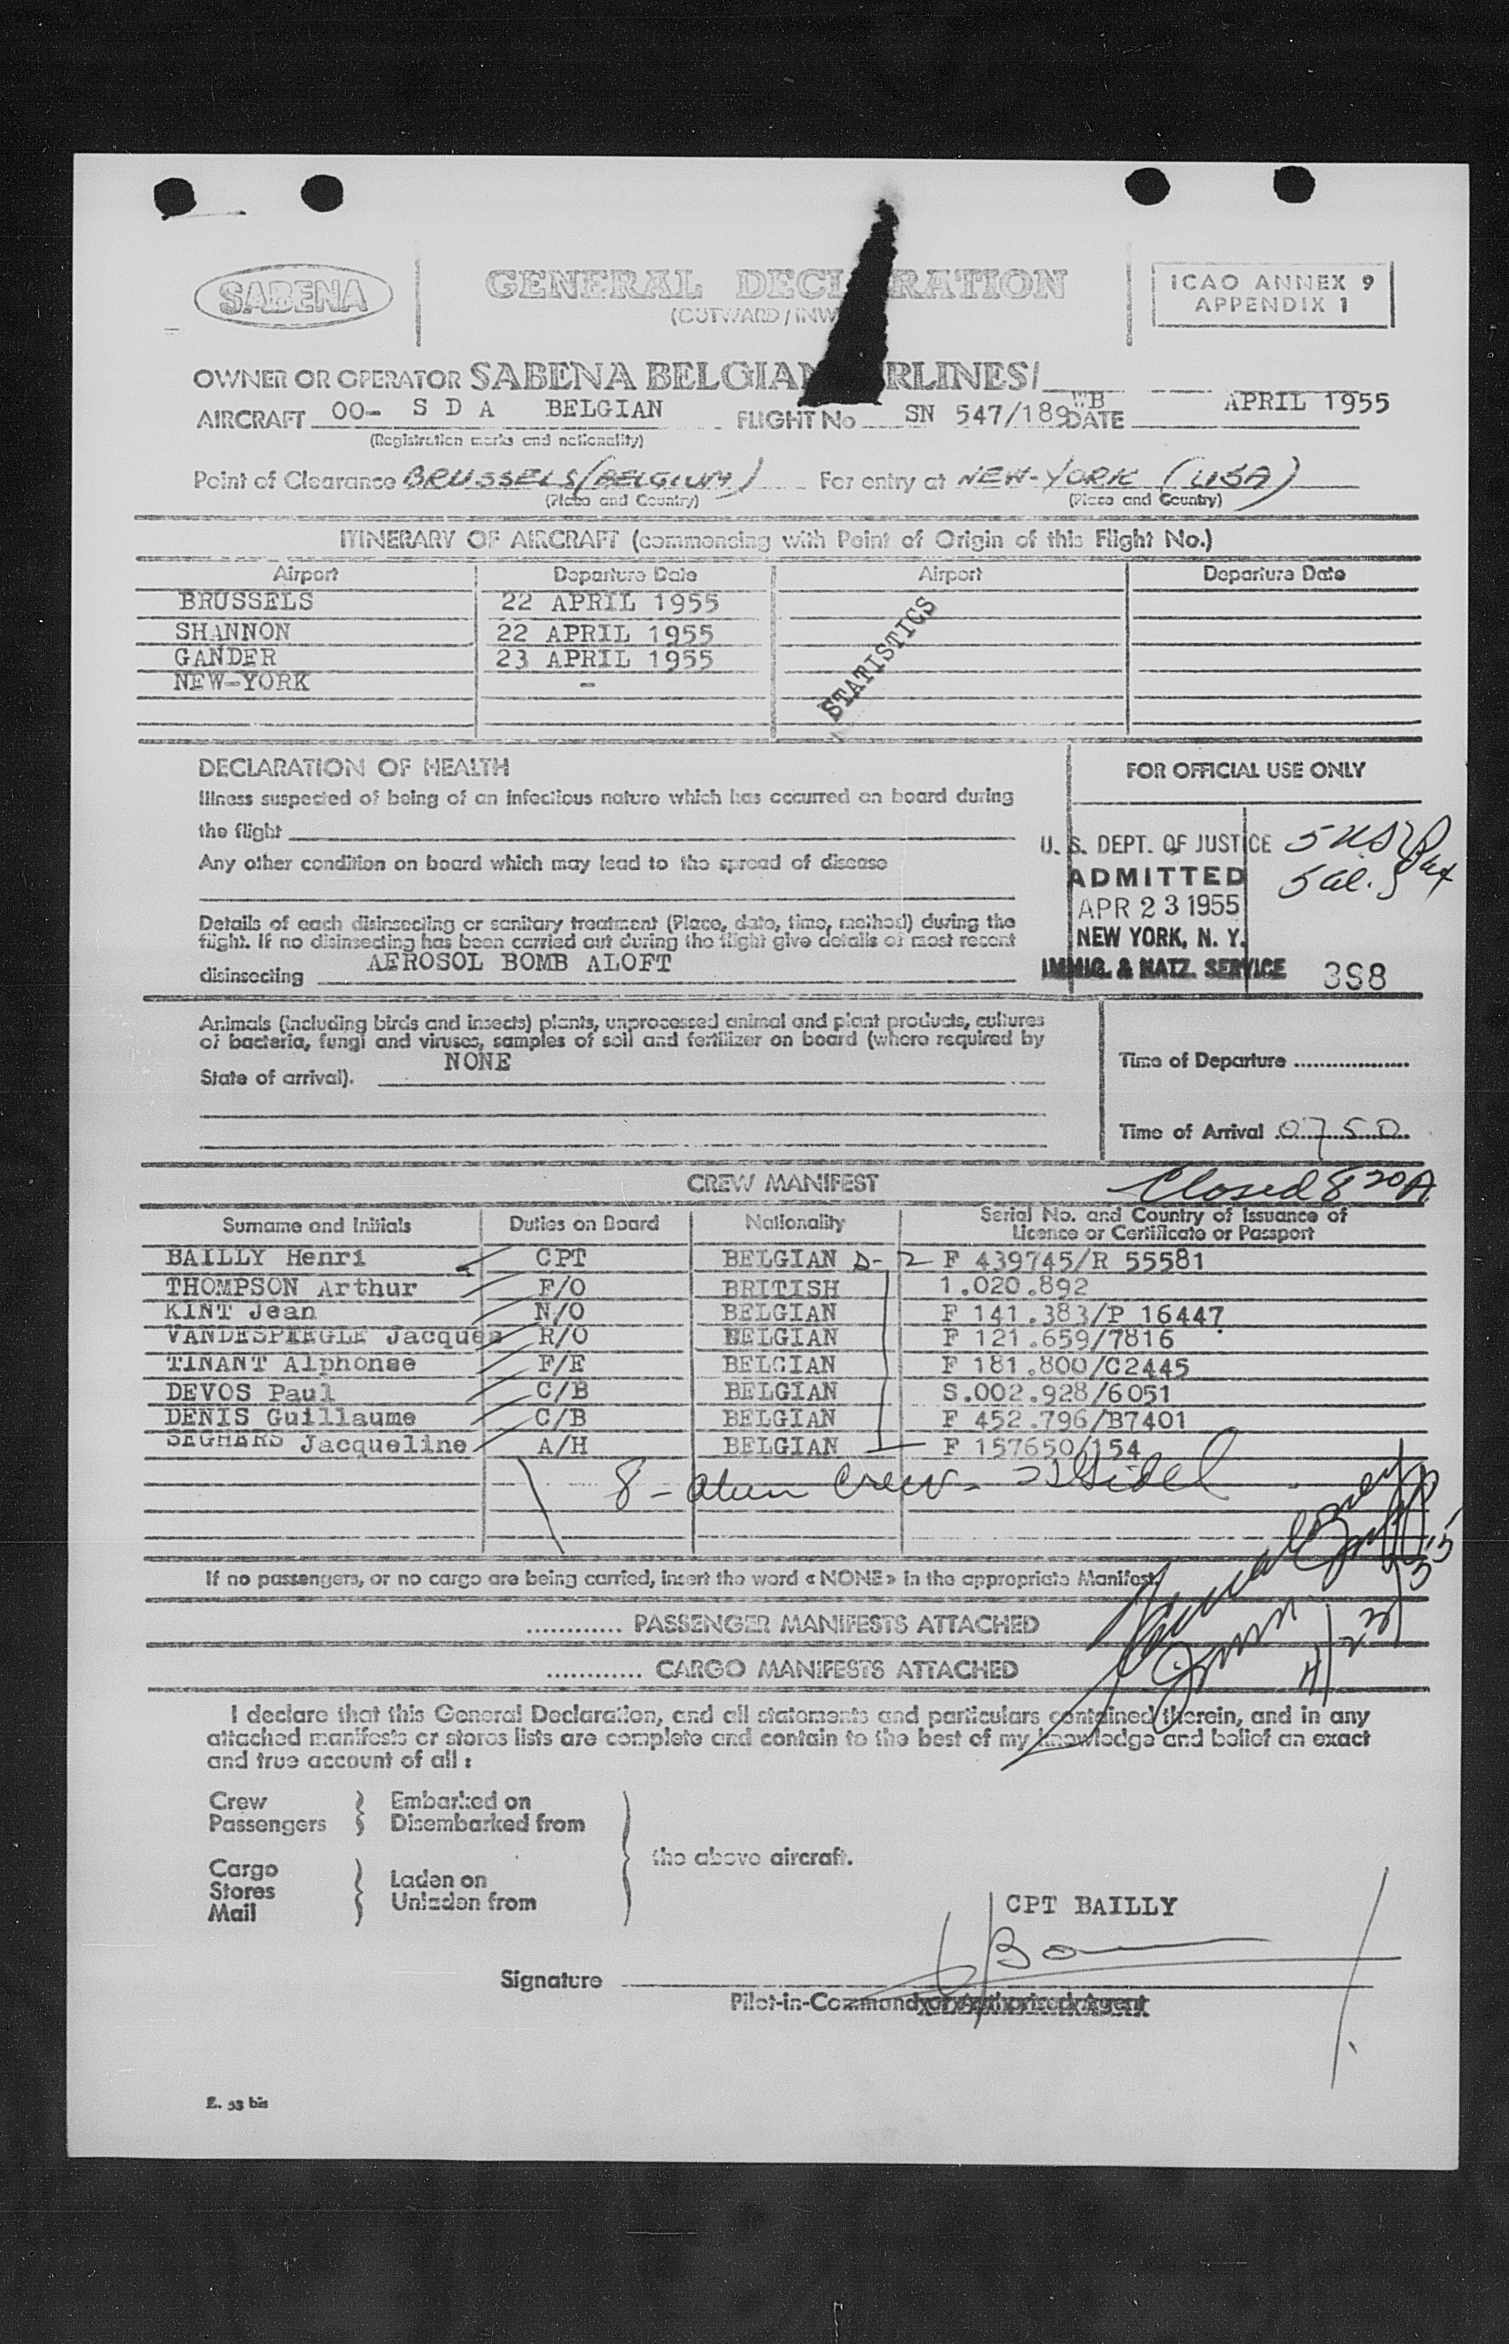 SABENA
GENERAL DECLARATION
(OUTWARD / INW
ICAO ANNEX 9
APPENDIX 1
OWNER OR OPERATOR SABENA BELGIAN AIRLINES/
AIRCRAFT OO- S D A BELGIAN FLIGHT No SN 547/189 WB DATE APRIL 1955
(Registration marks and nationality)
Point of Clearance BRUSSELS/(BELGIUM) For entry at NEW-YORK (USA)
(Place and Country) (Place and Country)
ITINERARY OF AIRCRAFT (commencing with Point of Origin of this Flight No.)
Airport Departure Date Airport Departure Date
BRUSSELS 22 APRIL 1955
SHANNON 22 APRIL 1955
GANDER 23 APRIL 1955
NEW-YORK -
STATISTICS
DECLARATION OF HEALTH
Illness suspected of being of an infectious nature which has occurred on board during
the flight
Any other condition on board which may lead to the spread of disease
Details of each disinsecting or sanitary treatment (Place, date, time, method) during the
flight. If no disinsecting has been carried out during the flight give details of most recent
disinsecting AEROSOL BOMB ALOFT
FOR OFFICIAL USE ONLY
U. S. DEPT. OF JUSTICE
ADMITTED
APR 23 1955
NEW YORK, N. Y.
IMMIG. & NATZ. SERVICE 398
5 US
5 al. Pax
Animals (including birds and insects) plants, unprocessed animal and plant products, cultures
of bacteria, fungi and viruses, samples of soil and fertilizer on board (where required by
State of arrival). NONE
Time of Departure
Time of Arrival 0750
Closed 8 20 A
CREW MANIFEST
Surname and Initials Duties on Board Nationality Serial No. and Country of Issuance of
Licence or Certificate or Passport
BAILLY Henri CPT BELGIAN D-2 F 439745/R 55581
THOMPSON Arthur F/O BRITISH 1.020.892
KINT Jean N/O BELGIAN F 141.383/P 16447
VANDESPIEGLE Jacques R/O BELGIAN F 121.659/7816
TINANT Alphonse F/E BELGIAN F 181.800/C2445
DEVOS Paul C/B BELGIAN S.002.928/6051
DENIS Guillaume C/B BELGIAN F 452.796/B7401
SEGHERS Jacqueline A/H BELGIAN F 157650/154
8 - alien crew -
If no passengers, or no cargo are being carried, insert the word « NONE » in the appropriate Manifest
............ PASSENGER MANIFESTS ATTACHED
............ CARGO MANIFESTS ATTACHED
I declare that this General Declaration, and all statements and particulars contained therein, and in any
attached manifests or stores lists are complete and contain to the best of my knowledge and belief an exact
and true account of all :
Crew Embarked on
Passengers Disembarked from
the above aircraft.
Cargo Laden on
Stores Unladen from
Mail
CPT BAILLY
Signature
Pilot-in-Command or Authorised Agent
E. 53 bis